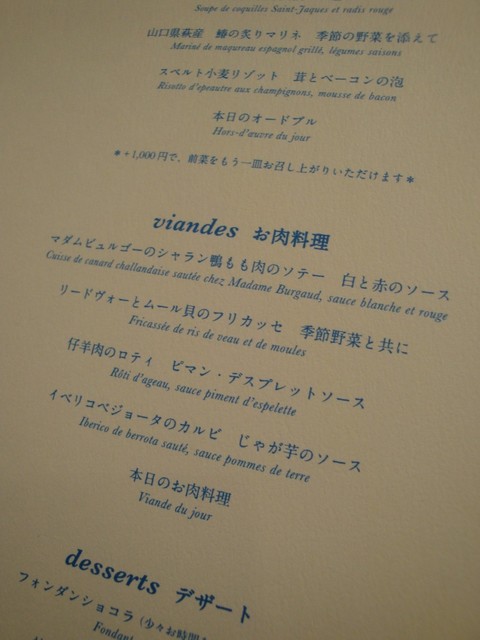 Soupe de coquilles Saint-Jaques et radis rouge
山口県萩産 鰆の炙りマリネ 季節の野菜を添えて
Mariné de maqureau espagnol grillé, légumes saisons
スペルト小麦リゾット 茸とベーコンの泡
Risotto d'epeautre aux champignons, mousse de bacon
本日のオードブル
Hors-d'œuvre du jour
＊+1,000円で、前菜をもう一皿お召し上がりいただけます＊
viandes お肉料理
マダムビュルゴーのシャラン鴨もも肉のソテー 白と赤のソース
Cuisse de canard challandaise sautée chez Madame Burgaud, sauce blanche et rouge
リードヴォーとムール貝のフリカッセ 季節野菜と共に
Fricassée de ris de veau et de moules
仔羊肉のロティ ピマン・デスプレットソース
Rôti d'ageau, sauce piment d'espelette
イベリコベジョータのカルビ じゃが芋のソース
Iberico de berrota sauté, sauce pommes de terre
本日のお肉料理
Viande du jour
desserts デザート
フォンダンショコラ (少々お時間
Fondant